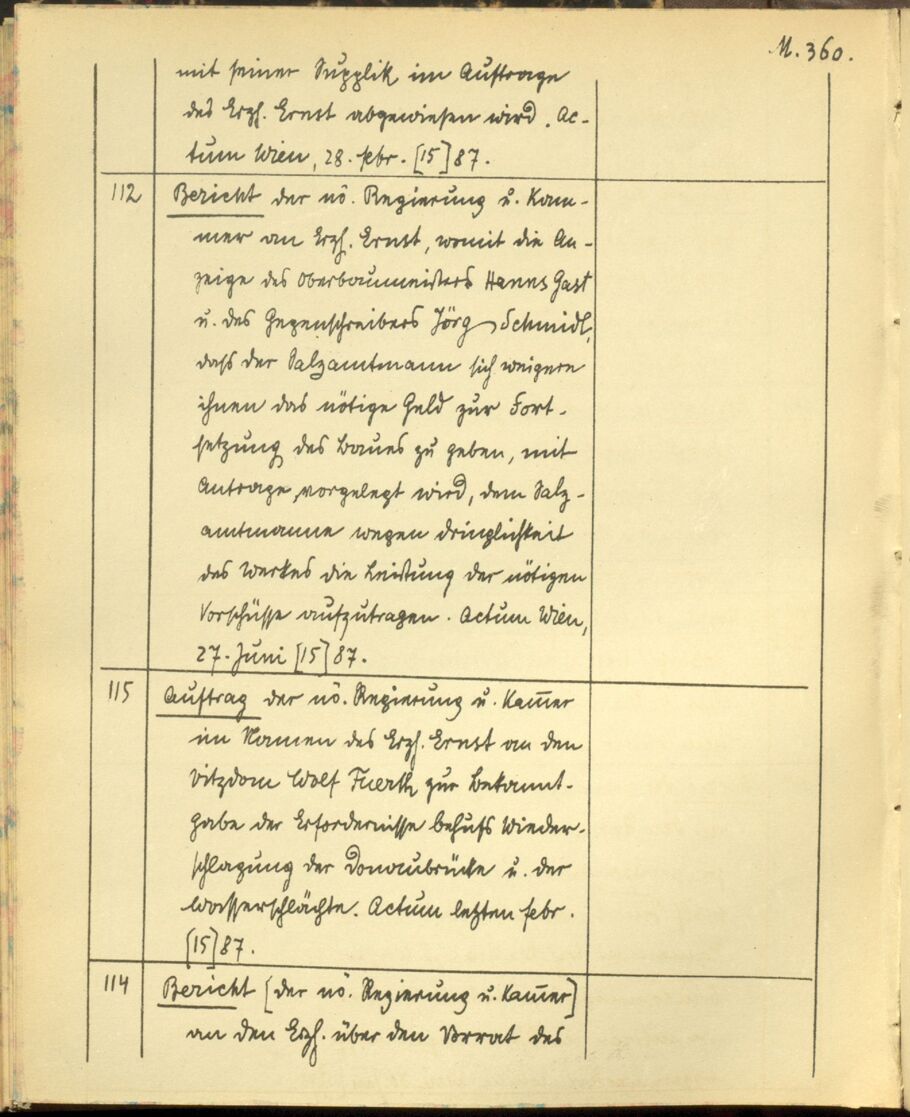 M. 360.
mit seiner Supplik im Auftrage
des Erzh. Ernst abgewiesen wird. Ac-
tum Wien, 28. Febr. [15]87.
112 Bericht der nö. Regierung u. Kam-
mer an Erzh. Ernst, womit die An-
zeige des Oberbaumeisters Hanns Gast
u. des Gegenschreibers Jörg Schmidl,
dass der Salzamtmann sich weigere
ihnen das nötige Geld zur Fort-
setzung des Baues zu geben, mit
Antrage vorgelegt wird, dem Salz-
amtmanne wegen Dringlichkeit
des Werkes die Leistung der nötigen
Vorschüsse aufzutragen. Actum Wien,
27. Juni [15]87.
115 Auftrag der nö. Regierung u. Kam̅er
im Namen des Erzh. Ernst an den
Vitzdom Wolf Fuerth zur Bekannt-
gabe der Erfordernisse behufs Wieder-
schlagung der Donaubrücke u. der
Wasserschlächte. Actum letzten Febr.
[15]87.
114 Bericht [der nö. Regierung u. Kam̅er]
an den Erzh. über den Vorrat des